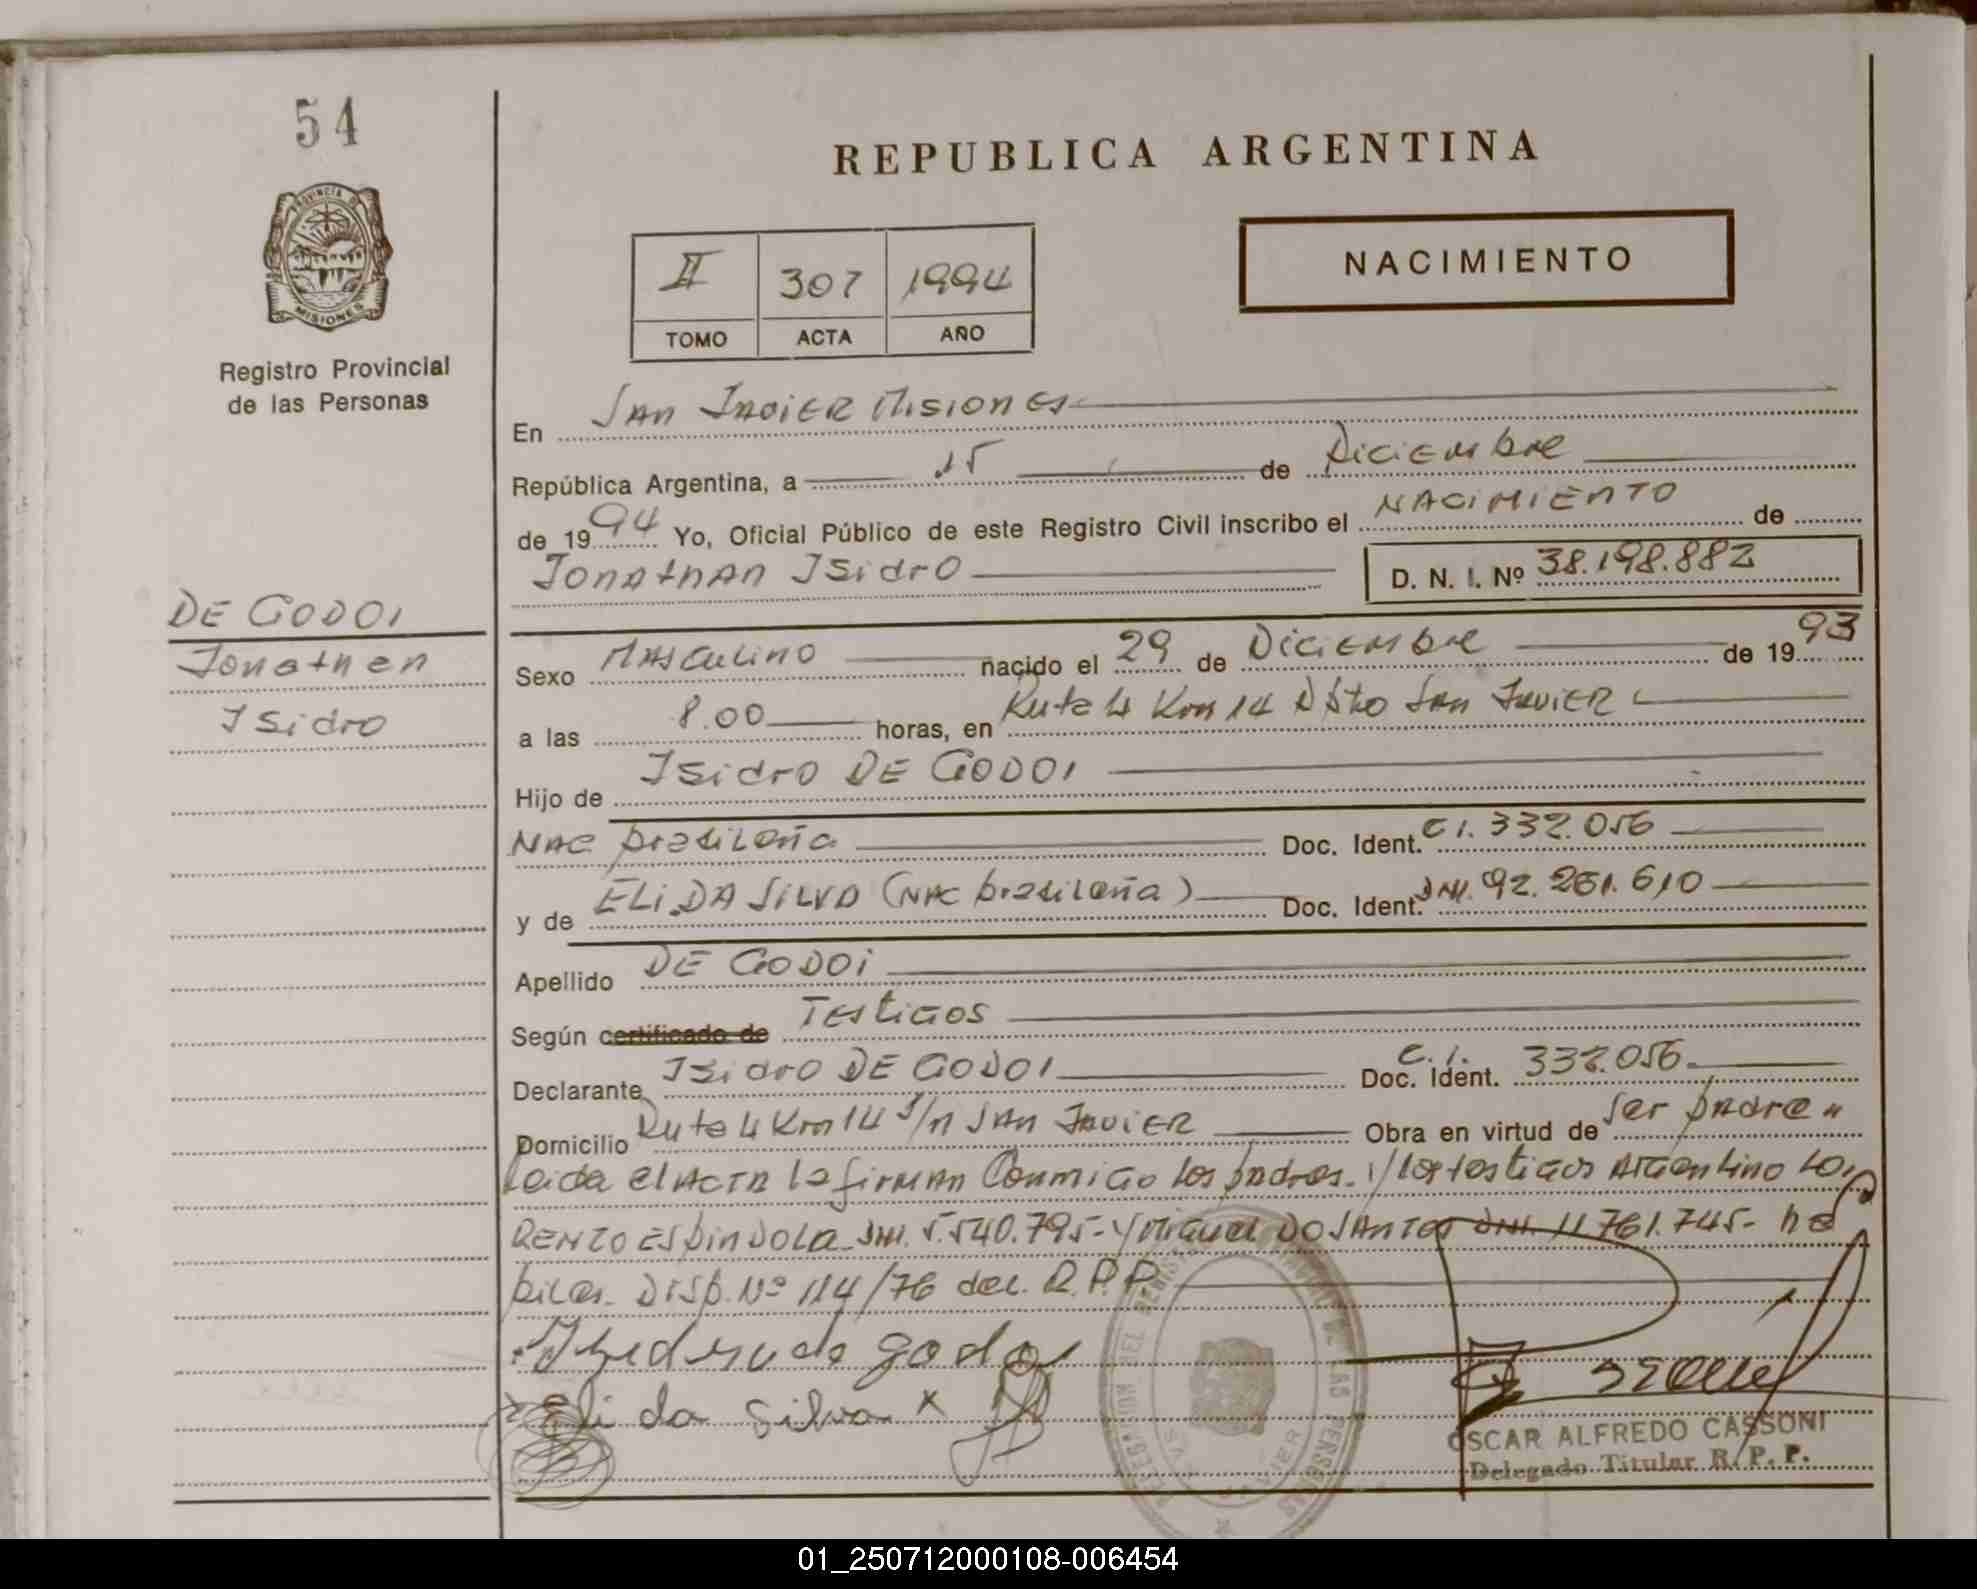 54
REPUBLICA ARGENTINA
PROVINCIA DE
MISIONES
Registro Provincial
de las Personas
II 307 1994
TOMO ACTA AÑO
NACIMIENTO
En San Javier Misiones
República Argentina, a 15 de Diciembre
de 1994 Yo, Oficial Público de este Registro Civil inscribo el NACIMIENTO de
Jonathan Isidro D. N. I. Nº 38.198.882
DE GODOI
Jonathan
Isidro
Sexo Masculino nacido el 29 de Diciembre de 1993
a las 8.00 horas, en Ruta 4 Km 14 Dsto San Javier
Hijo de Isidro DE GODOI
Nac brasileña Doc. Ident. C I. 332.056
y de ELI DA SILVA (Nac brasileña) Doc. Ident. DNI. 92.261.610
Apellido DE GODOI
Según certificado de Testigos
Declarante Isidro DE GODOI Doc. Ident. C.I. 332.056
Domicilio Ruta 4 Km 14 S/n San Javier Obra en virtud de ser padre
Leida el Acta la firman Conmigo los padres. y los testigos Argentino Lo
RENZO ESPINDOLA DNI. 5.540.795- y Miguel DO SANTOS DNI. 11.761.745- há
biles. Disp. Nº 114/76 del. R.P.P.
de godoi
Eli da silva x
DELEGACION DEL REGISTRO PROVINCIAL DE LAS PERSONAS
SAN JAVIER
OSCAR ALFREDO CASSONI
Delegado Titular R. P. P.
01_250712000108-006454